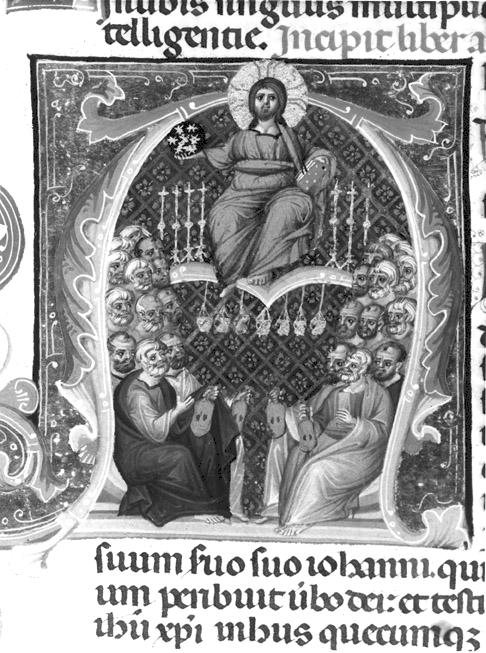 in ubis singulis multipli
telligentie. Incipit liber a
suum suo suo iohanni. qui
um peribuit ubo dei: et testi
ihu xpi inhus quecumqz